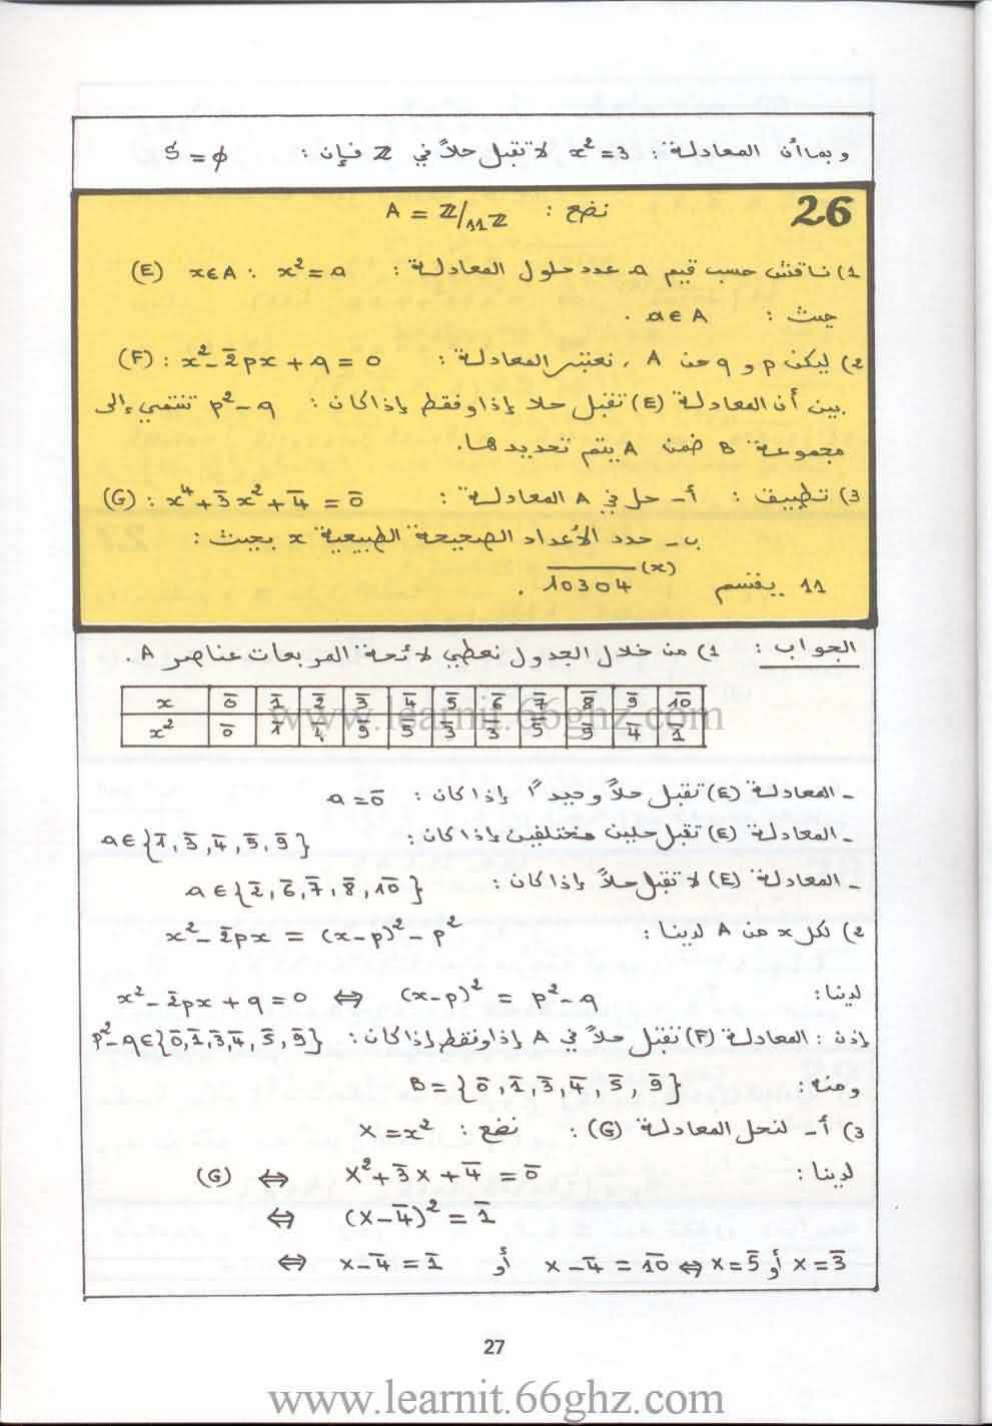 وبما أن المعادلة: x²=3 لا تقبل حلاً في Z فإن: S = ϕ
26 نضع: A = Z/11Z
1) ناقش حسب قيم a عدد حلول المعادلة: (E) x∈A : x² = a
حيث: a∈A .
2) ليكن p و q من A ، نعتبر المعادلة: (F) : x² - 2̄px + q = 0
بين أن المعادلة (E) تقبل حلا إذا وفقط إذا كان: p² - q تنتمي إلى
مجموعة B ضمن A يتم تحديدها.
3) تطبيق: أ- حل في A المعادلة: (G) : x⁴ + 3̄x² + 4̄ = 0̄
ب- حدد الأعداد الصحيحة الطبيعية x بحيث:
11 يقسم 10304^(x) .
الجواب: 1) من خلال الجدول نعطي لائحة المربعات عناصر A .
x 0̄ 1̄ 2̄ 3̄ 4̄ 5̄ 6̄ 7̄ 8̄ 9̄ 10̄
x² 0̄ 1̄ 4̄ 9̄ 5̄ 3̄ 3̄ 5̄ 9̄ 4̄ 1̄
www.learnit.66ghz.com
- المعادلة (E) تقبل حلاً وحيداً إذا كان: a = 0̄
- المعادلة (E) تقبل حلين مختلفين إذا كان: a∈{1̄, 3̄, 4̄, 5̄, 9̄}
- المعادلة (E) لا تقبل حلاً إذا كان: a∈{2̄, 6̄, 7̄, 8̄, 10̄}
2) لكل x من A لدينا: x² - 2̄px = (x-p)² - p²
لدينا: x² - 2̄px + q = 0 ⇔ (x-p)² = p² - q
إذن: المعادلة (F) تقبل حلاً في A إذا وفقط إذا كان: p² - q∈{0̄, 1̄, 3̄, 4̄, 5̄, 9̄}
ومنه: B = {0̄, 1̄, 3̄, 4̄, 5̄, 9̄}
3) أ- لنحل المعادلة (G): نضع: X = x²
لدينا: (G) ⇔ X² + 3̄X + 4̄ = 0̄
⇔ (X - 4̄)² = 1̄
⇔ X - 4̄ = 1̄ أو X - 4̄ = 10̄ ⇔ X = 5̄ أو X = 3̄
27
www.learnit.66ghz.com